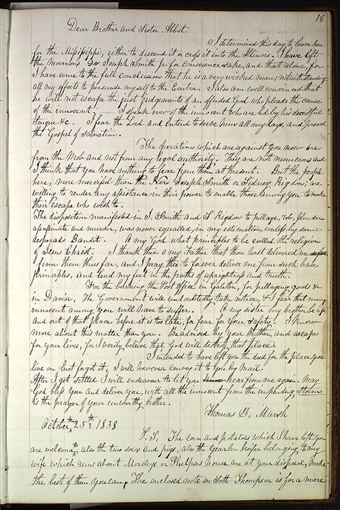 18
Dear Brother and Sister Abbot.
I determined this day to leave here
for the Mississippi, either to descend it or cross it into the Illinois. I have left
the Mormons & Joseph Smith jr for conscience sake, and that alone, for
I have come to the full conclusion that he is a very wicked man; notwithstanding
all my efforts to persuade myself to the contrary. I also am well convinced that
he will not escape the just judgements of an offended God who pleads the cause
of the innocent. I speak now of the innocent who are led by his deceitful
tongue &c. I fear the Lord and intend to seek him all my days, and proceed
that Gospel of salvation.
The operations which are against you now are
from the Mob and not from any legal authority. They are not numerous and
I think that you have nothing to fear from them at present. But the people
here, more merciful than the Rev Joseph Smith or Sidney Rigdon, are
willing to render any assistance in their power to enable those leaving you to make
their escape who wish to.
The disposition manifested in J. Smith and S Rigdon to pillage, rob, plunder
assassinate and murder, was never equalled, in my estimation, unless by some
desperado Bandit. O my God what principles to be called the religion
of Jesus Christ. I thank thee O my Father that thou hast delivered me
from them thus far, and I pray thee to forever deliver me from such base
principles, and lead my feet in the paths of uprightness and truth.
For the burning the Post office in Galatin, for pillaging goods &c
in Daviess, the Government will undoubtedly take notice, & I fear that many
innocent among you will have to suffer. O my sister my brother be up
and out of that place before it is too late, for fear for your safety. I know
more about this matter than you. Be advised by your Brother, and escape
for your lives, for I verily believe that God will destroy that place.
I intended to have left you the deed for the place you
live on but forgot it, I will however convey it to you by mail.
After I get settled I will endeavor to let you hear from me again. May
God bless you and deliver you, with all the innocent from the impending storm
is the prayer of your unworthy brother.
Thomas B, Marsh
October 25th 1838
P.S. The corn and potatoes which I have left you
are welcome to, also the two sows and pigs, also the
wife which are about Mordays or Phelps's house are at your disposal, make
the best of them you can, The enclosed note on Seth Thompson is for a mare